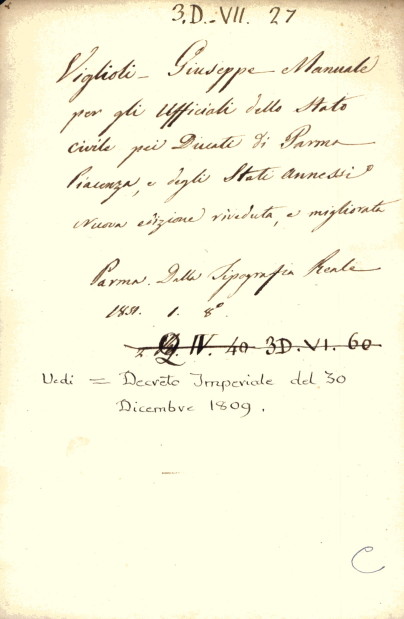 3.D.-VII. 27
Viglioli - Giuseppe - Manuale
per gli Ufficiali dello Stato
civile pei Ducati di Parma
Piacenza, e degli Stati annessi
nuova edizione riveduta, e migliorata
Parma. Dalla Tipografia Reale
1831. 1. 8°
IV. 40 3D.VI. 60
Vedi = Decreto Imperiale del 30
Dicembre 1809.
C